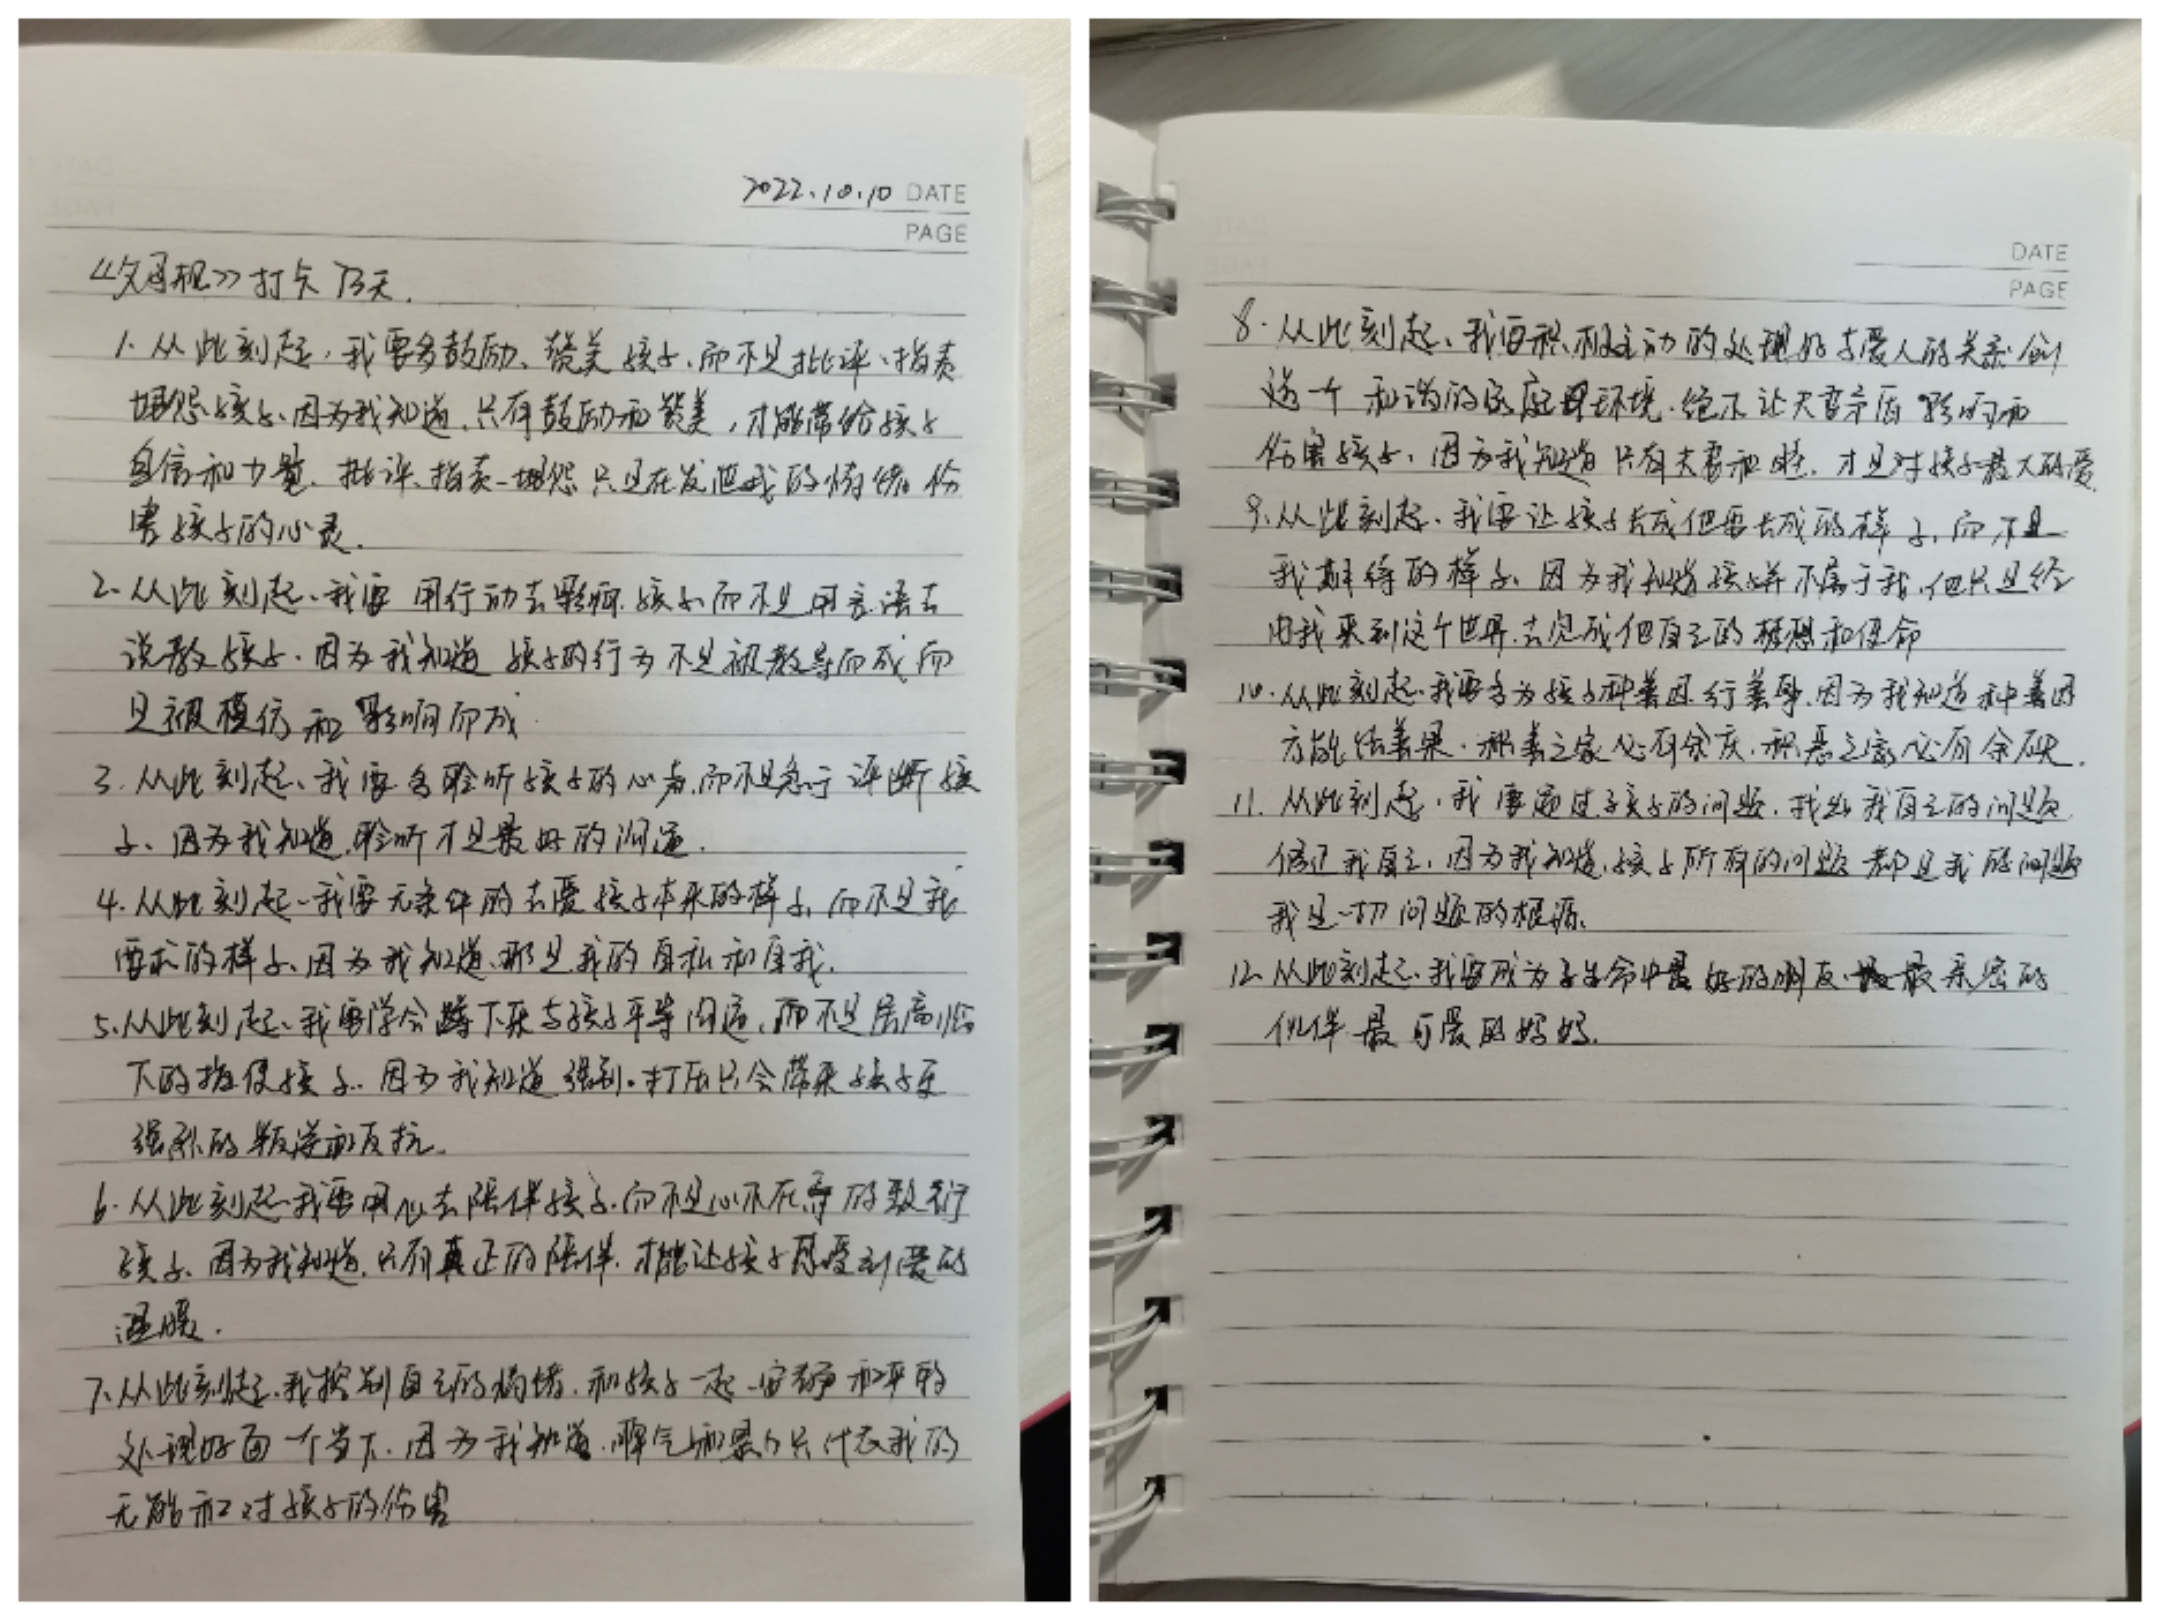 2022.10.10 DATE
PAGE
《父母规》打卡73天.
1. 从此刻起,我要多鼓励、赞美孩子,而不是批评、指责
埋怨孩子、因为我知道,只有鼓励和赞美,才能带给孩子
自信和力量. 批评、指责、埋怨只是在发泄我的情绪. 伤
害孩子的心灵.
2. 从此刻起、我要用行动去影响孩子而不是用言语去
说教孩子. 因为我知道 孩子的行为不是被教导而成而
是被模仿和影响而成
3. 从此刻起、我要多聆听孩子的心声,而不是急于评断孩
子、因为我知道,聆听才是最好的沟通.
4. 从此刻起、我要无条件的去爱孩子本来的样子,而不是我
要求的样子、因为我知道、那是我的自私和自我.
5. 从此刻起、我要学会蹲下来与孩子平等沟通,而不是居高临
下的指使孩子. 因为我知道强制、打压只会带来孩子更
强烈的叛逆和反抗.
6. 从此刻起、我要用心去陪伴孩子,而不是心不在焉的敷衍
孩子、因为我知道,只有真正的陪伴,才能让孩子感受到爱的
温暖.
7. 从此刻起、我控制自己的情绪,和孩子一起安静和平的
处理好面一个当下、因为我知道,脾气和暴力只代表我的
无能和对孩子的伤害
DATE
PAGE
8. 从此刻起、我要积极主动的处理好与爱人的关系创
造一个和谐的家庭环境、绝不让夫妻矛盾影响和
伤害孩子,因为我知道只有夫妻和睦,才是对孩子最大的爱.
9. 从此刻起、我要让孩子长成他要长成的样子,而不是
我期待的样子、因为我知道孩子并不属于我,他只是经
由我来到这个世界,去完成他自己的梦想和使命
10. 从此刻起、我要多为孩子种善因行善事,因为我知道种善因
方能结善果. 积善之家必有余庆,积恶之家必有余殃.
11. 从此刻起,我要通过孩子的问题,找出我自己的问题
修正我自己,因为我知道,孩子所有的问题都是我的问题
我是一切问题的根源.
12. 从此刻起、我要成为子生命中最好的朋友、最亲密的
伙伴 最可爱的妈妈.